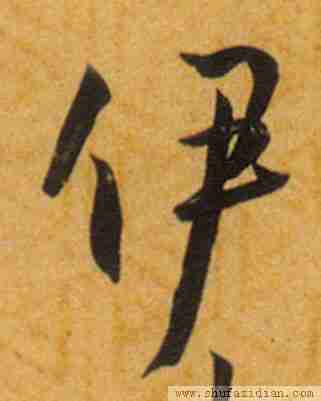 伊
www.shufazidian.com